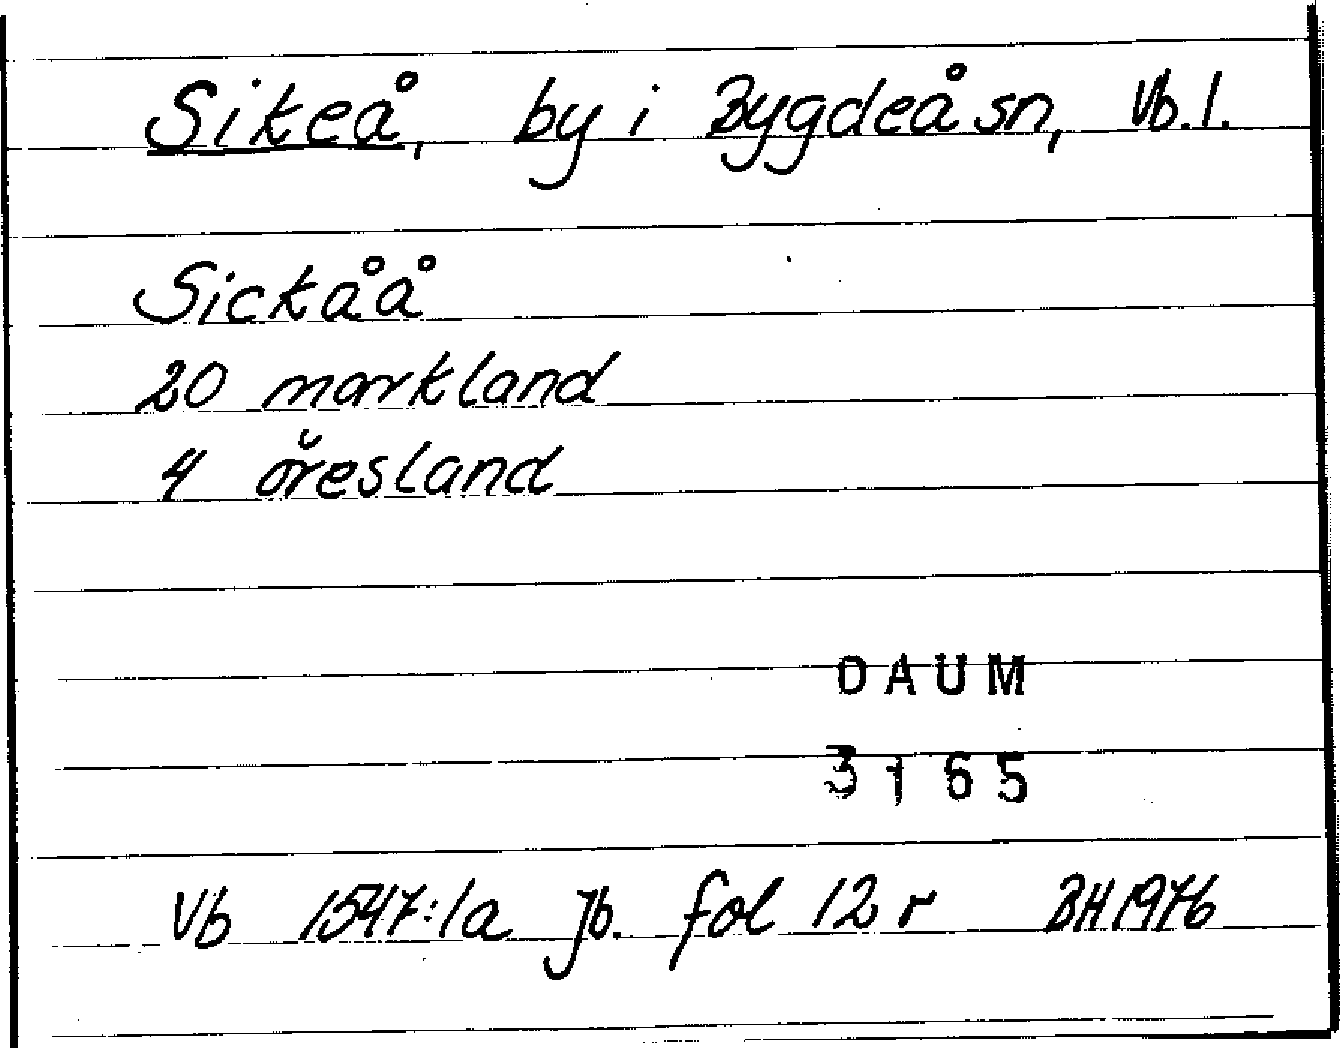 Sikeå, by i Bygdeå sn, Vb. l.
Sickåå
20 markland
4 öresland
DAUM
3165
Vb 1547:1a Jb. fol 12 r BH 1976